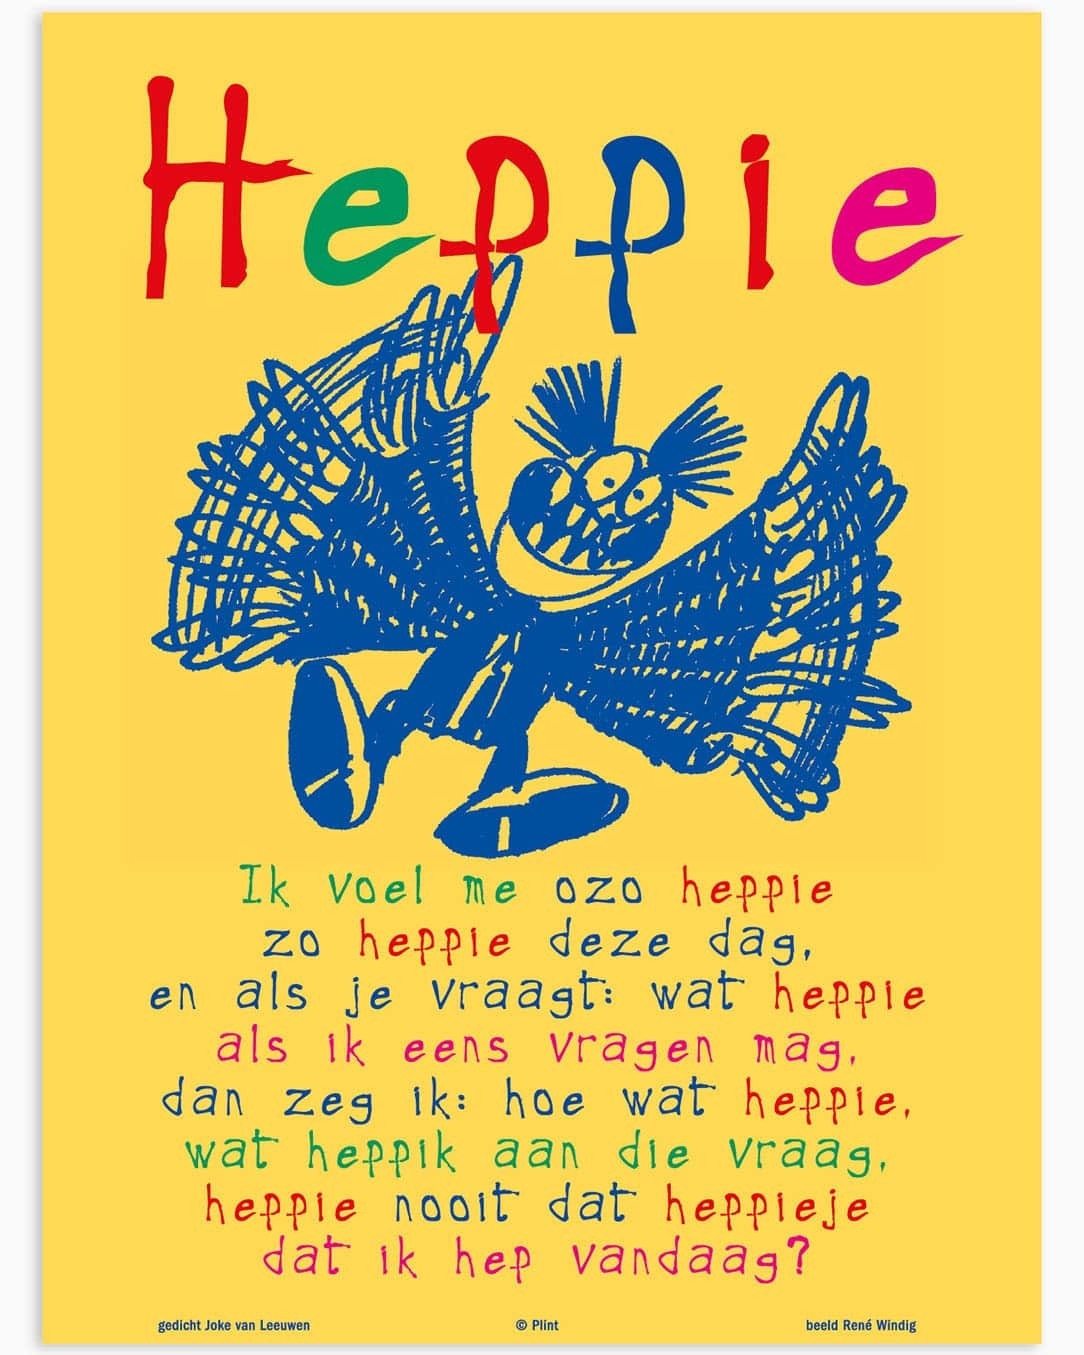 Heppie
Ik voel me ozo heppie
zo heppie deze dag,
en als je vraagt: wat heppie
als ik eens vragen mag,
dan zeg ik: hoe wat heppie,
wat heppik aan die vraag,
heppie nooit dat heppieje
dat ik hep vandaag?
gedicht Joke van Leeuwen © Plint beeld René Windig